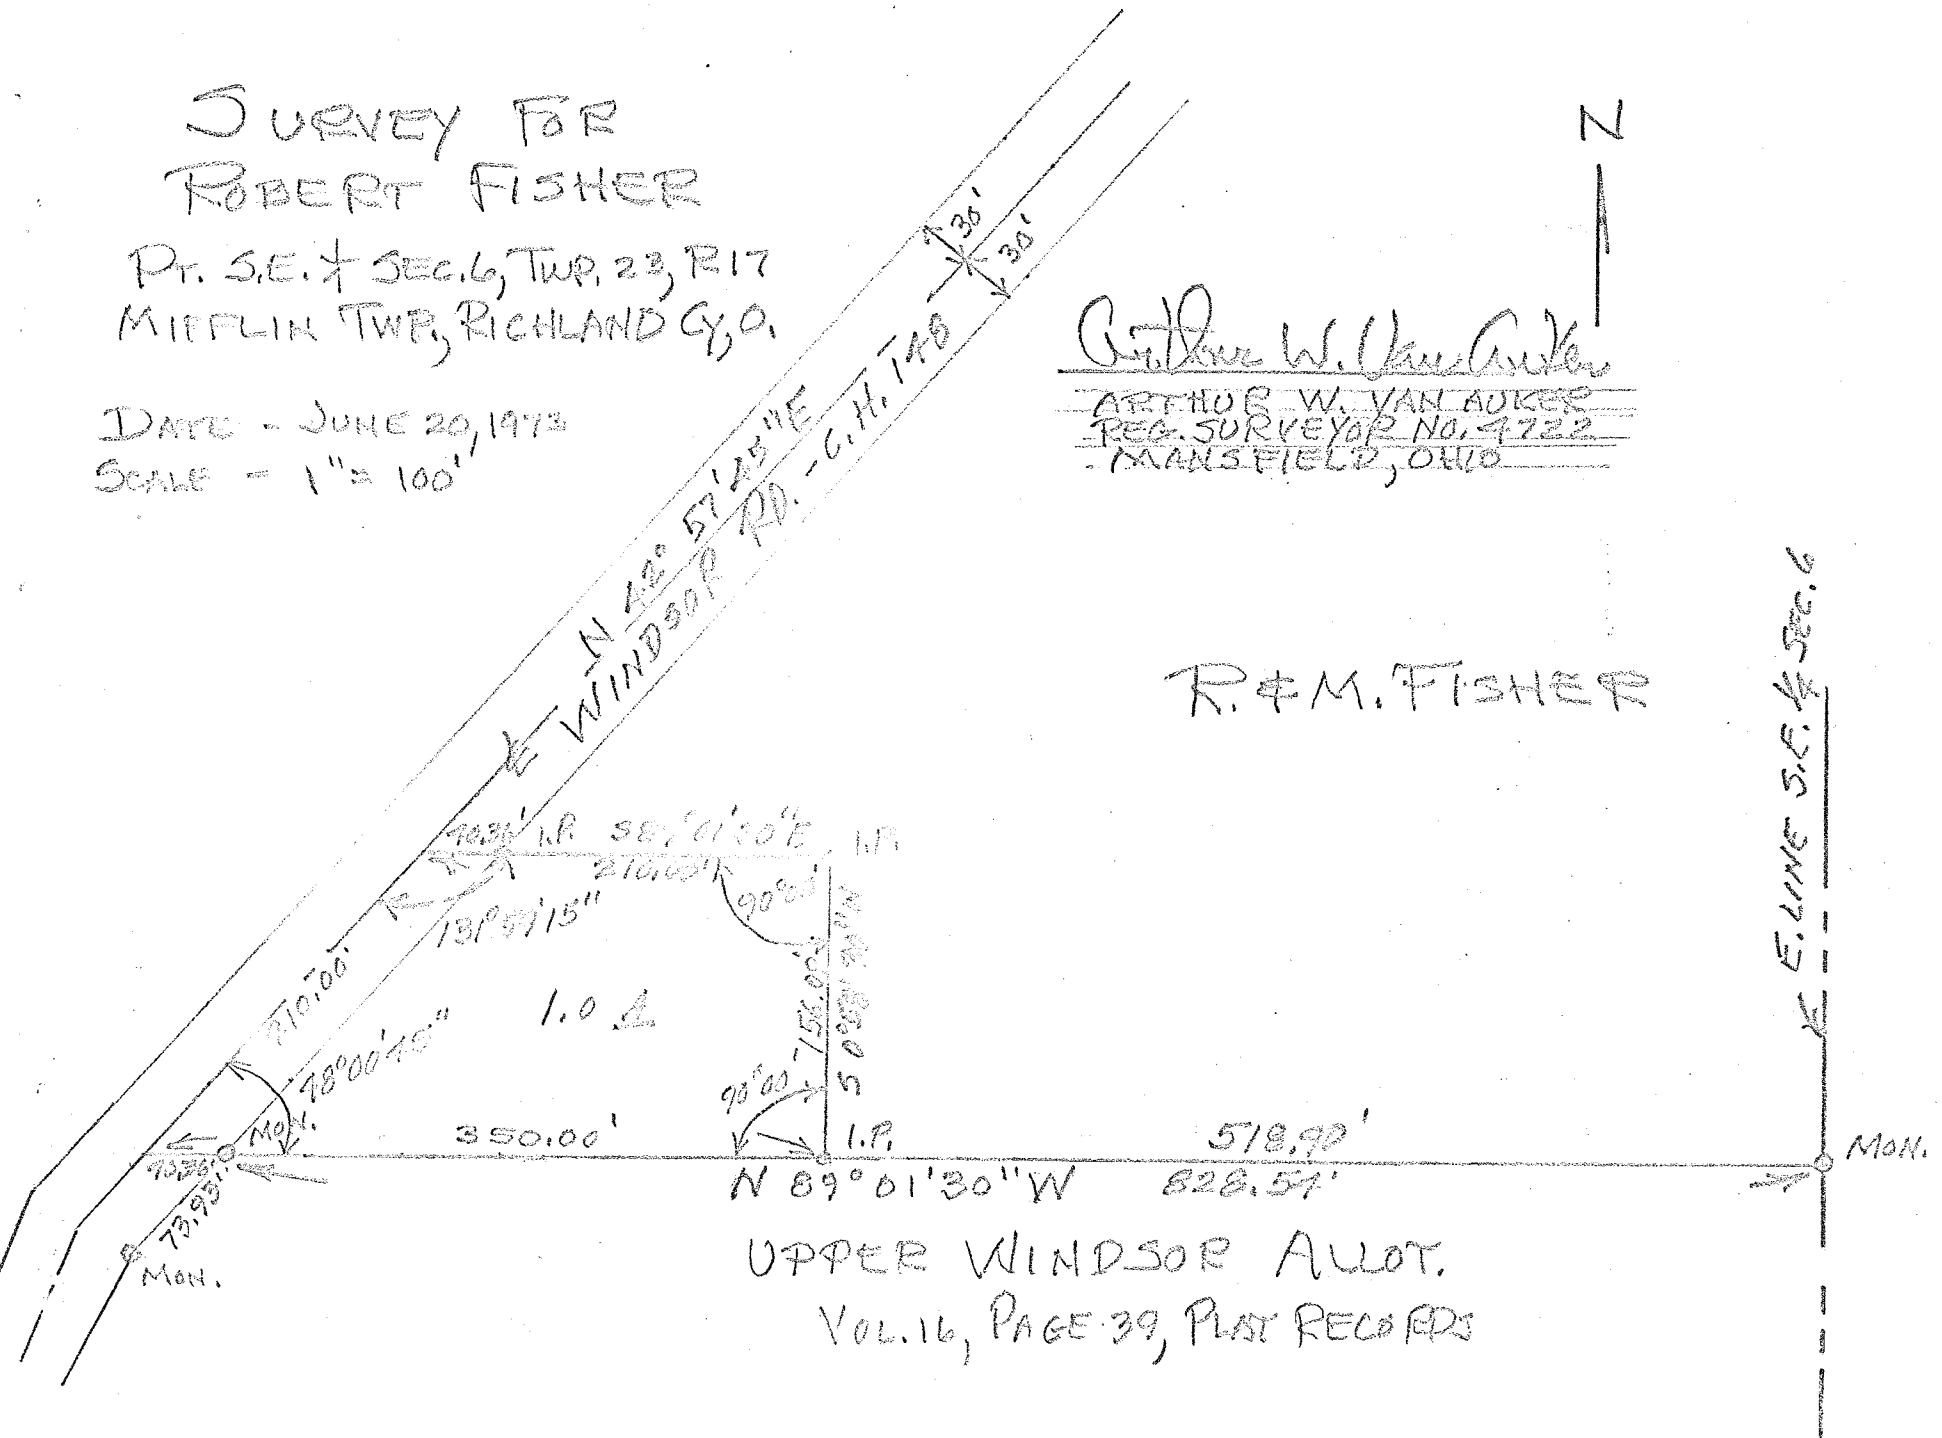 SURVEY FOR
ROBERT FISHER
PT. S.E. ¼ SEC. 6, TWP. 23, R 17
MIFFLIN TWP., RICHLAND CY, O.
DATE - JUNE 20, 1973
SCALE - 1" = 100'
N
30'
30'
Arthur W. Van Auker
ARTHUR W. VAN AUKER
REG. SURVEYOR NO. 4722
MANSFIELD, OHIO
N 42° 57' 45" E
WINDSOR RD. - C.H. 148
R. & M. FISHER
E. LINE S.E. ¼ SEC. 6
40.36' I.P. E I.P.
210.00'
90°00'
131°59'15"
210.00'
1.0 A
156.00'
S 0°58'30" W
48°00'45"
90°00'
MON. 350.00' I.P. 518.90' MON.
40.36' N 89°01'30" W 828.54'
73.95'
MON.
UPPER WINDSOR ALLOT.
VOL. 16, PAGE 39, PLAT RECORDS